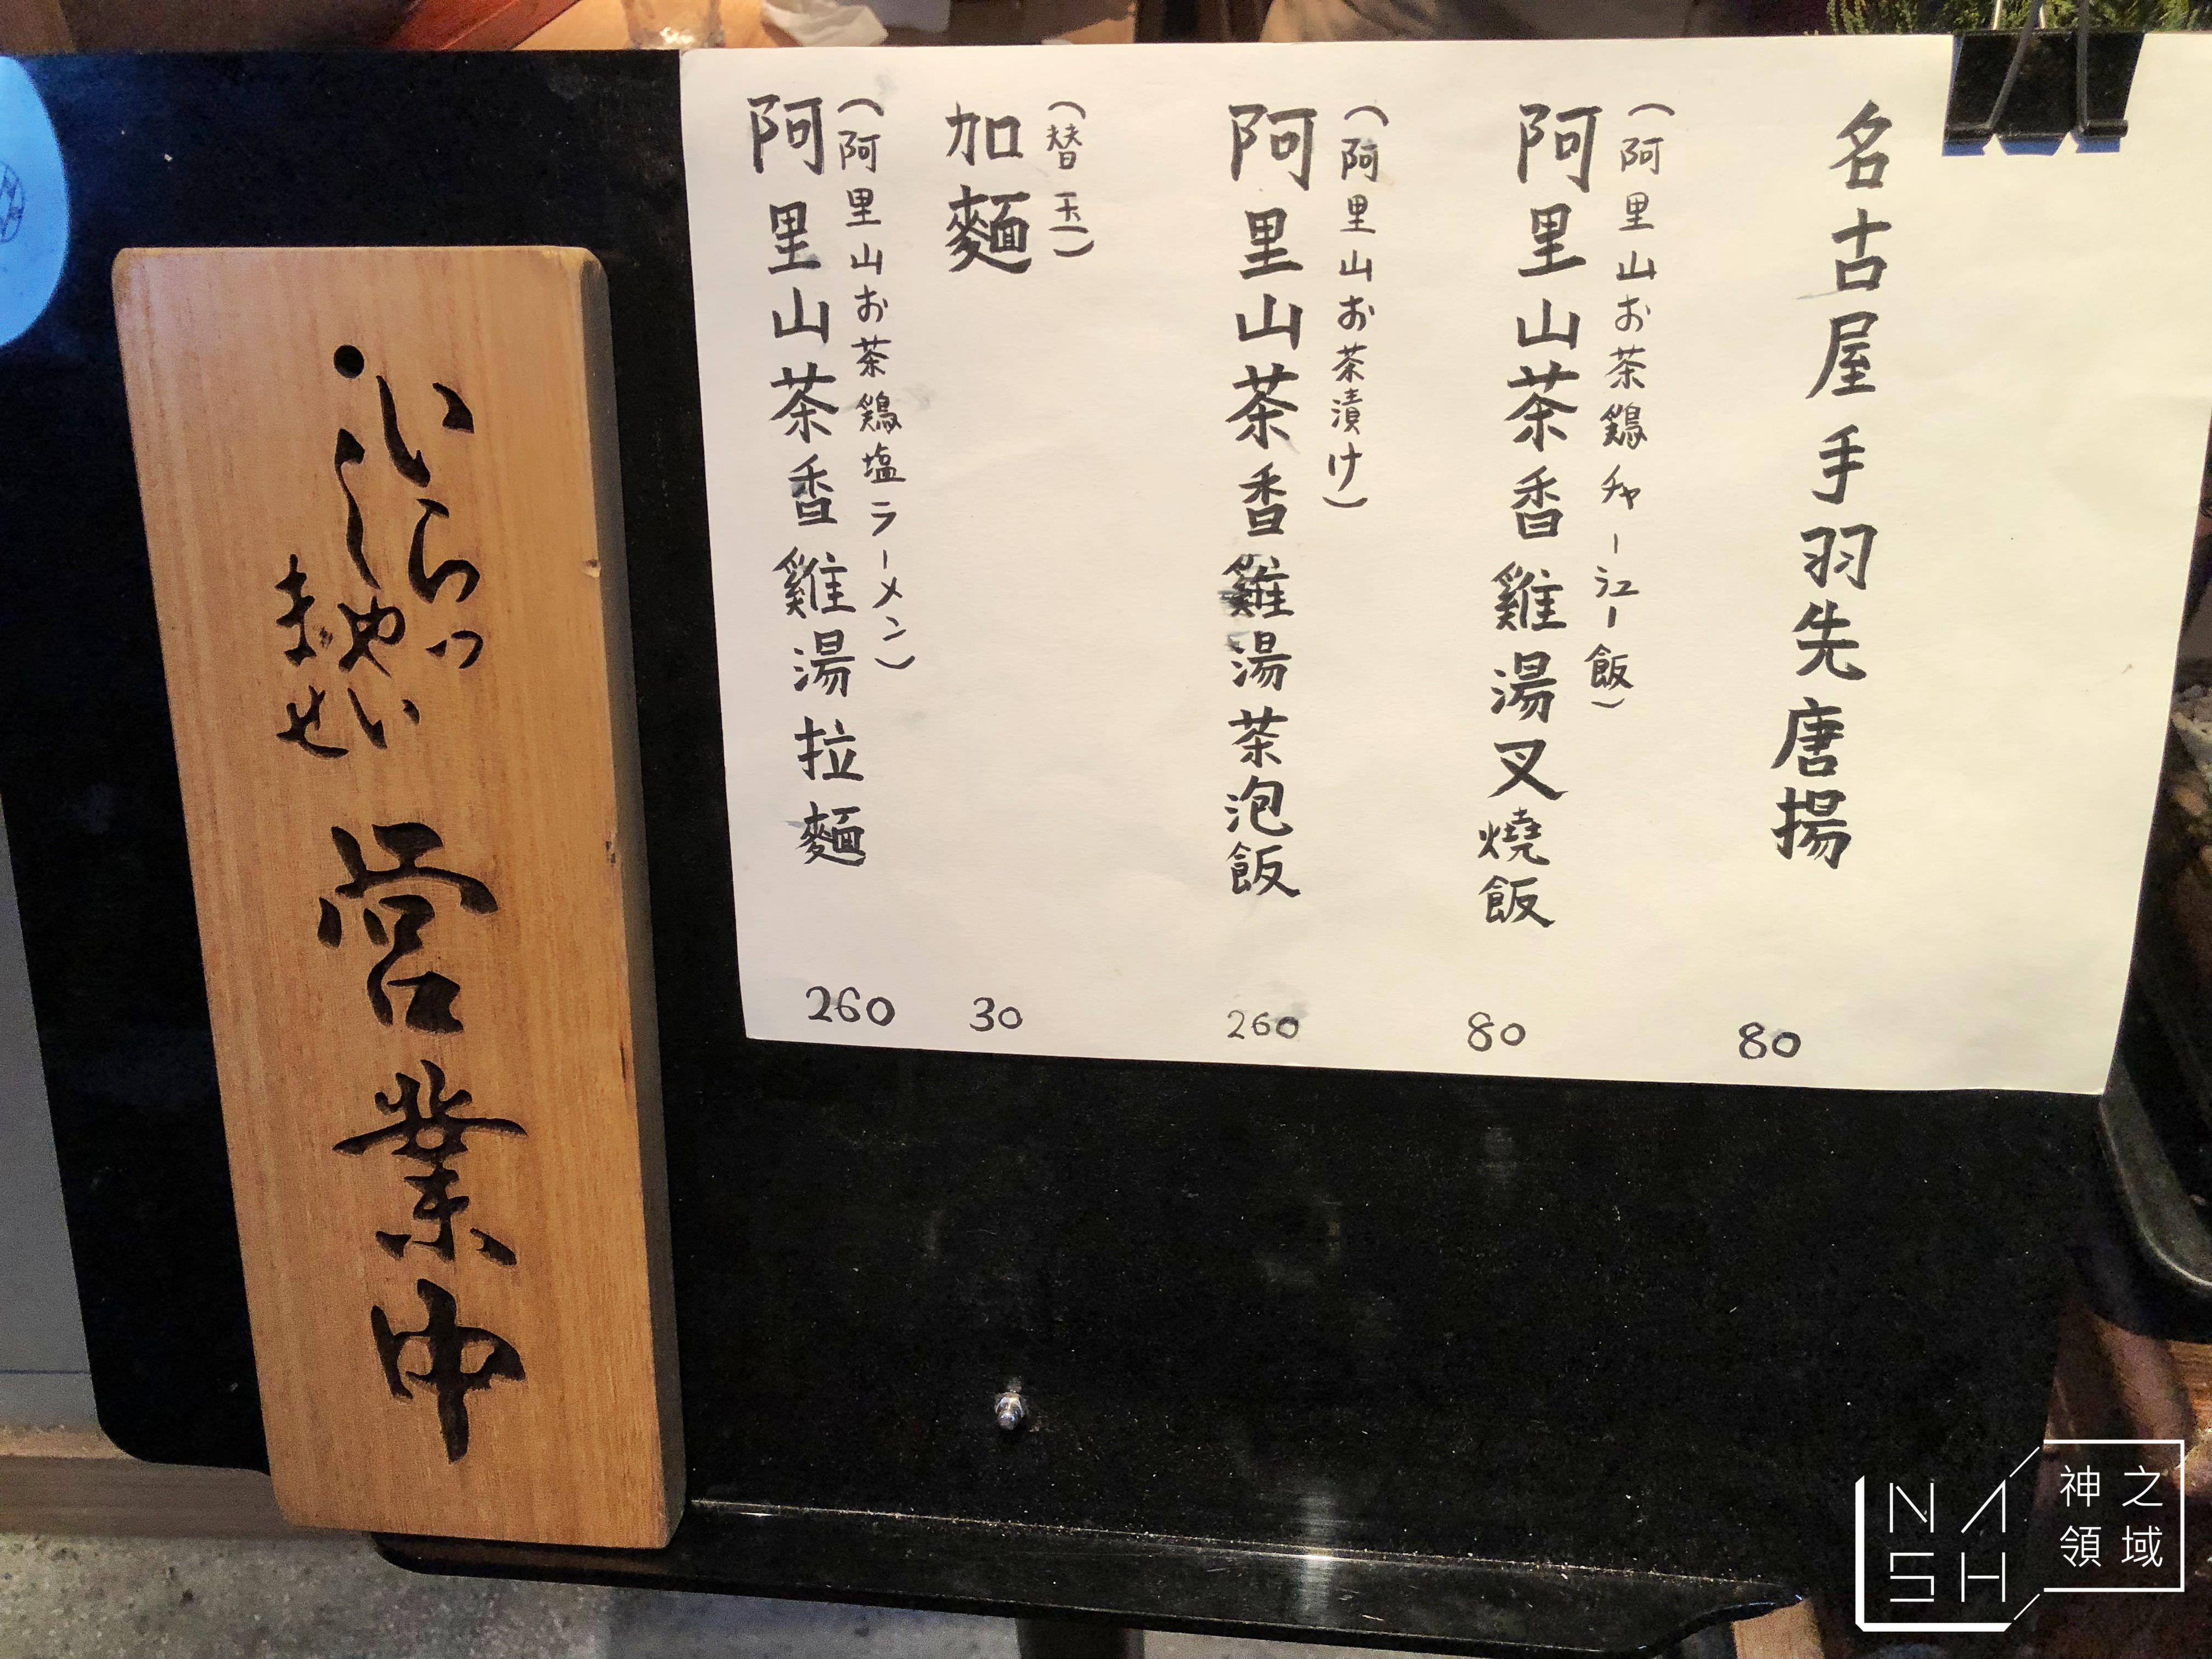 名古屋手羽先唐揚 80
(阿里山お茶鶏チャーシュー飯)
阿里山茶香雞湯叉燒飯 80
(阿里山お茶漬け)
阿里山茶香雞湯茶泡飯 260
(替玉)
加麵 30
(阿里山お茶鶏塩ラーメン)
阿里山茶香雞湯拉麵 260
いらっ
しゃい
ませ
営業中
NASH
神之
領域